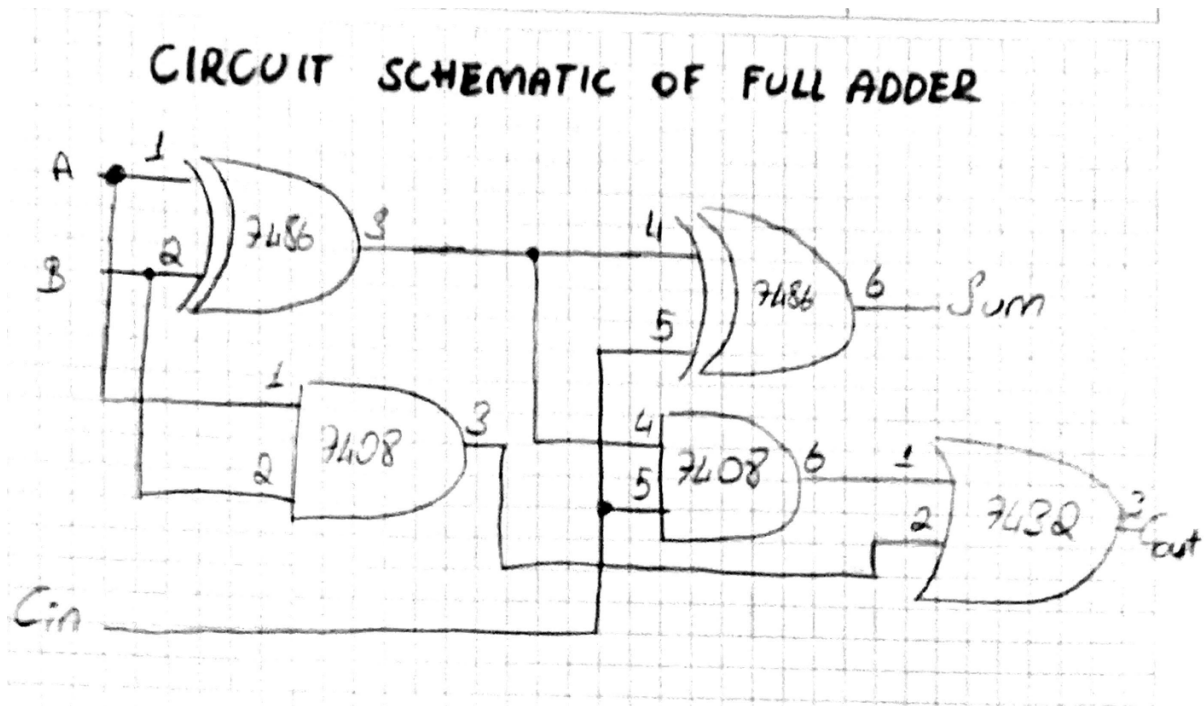 CIRCUIT SCHEMATIC OF FULL ADDER
A 1
7486 3
B 2
4
7486 6 Sum
5
1
7408 3
2
4
7408 6
5
1
7432 3 Cout
2
Cin